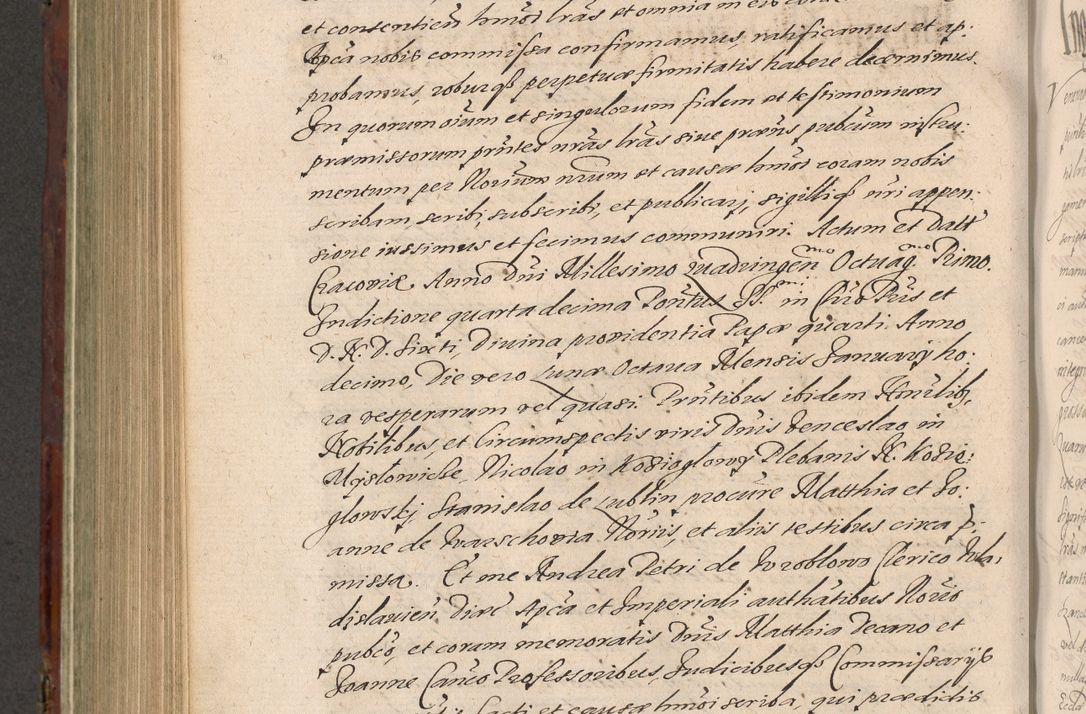 et consentien̄ hm̄oi lr̄as et omnia in eis
Apca nobis commissa confirmamus, ratificamus et ap:
probamus, roburq3 perpetuæ firmitatis habere decernimus.
In quorum oium et singulorum fidem et testimonium
præmissorum prn̄tes nr̄as lr̄as sive præn̄s publicum instru:
mentum per Norium nr̄um et causæ hm̄oi coram nobis
scribam, scribi, subscribi, et publicarj, sigilliq3 nr̄i appen:
sione iussimus et fecimus communiri. Actum et Datt
Cracoviæ Anno Dn̄i Millesimo quadringen̄mo Octuag.mo Primo.
Indictione quarta decima Pontus SS.mi in Chr̄o Pris et
D. N. D. Sixti, Divina providentia Papæ quarti Anno
decimo, Die vero Lunæ Octava Mensis Januarij ho:
ra vesperarum vel quasi. Prn̄tibus ibidem Honr̄lib9,
Nobilibus, et Circumspectis viris Dn̄is Venceslao in
Myslowicze, Nicolao in Kozieglowy Plebanis N. Kozie:
glowskj, Stanislao de Lublin procūre Matthia et Jo:
anne de Warschovia Nōriis, et aliis testibus circa p:
missa. Et me Andrea Petri de Wroblowo Clerico Wla:
dislavien̄ Diæc Apca et Imperiali authātibus Norio
pubco, et coram memoratis Dn̄is Matthia Decano et
Joanne Canco Professoribus, Judicibusq3 Commissarijs
facti et causæ hm̄oi scriba, qui prædictis